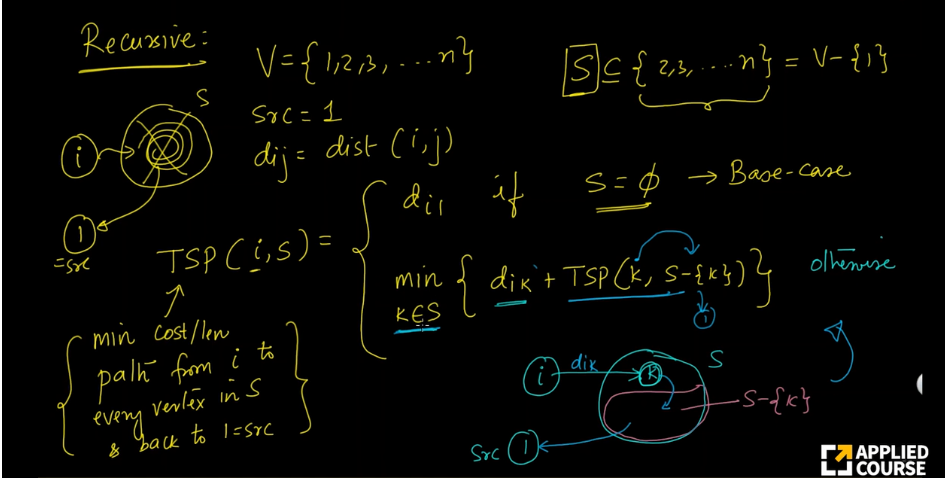 Recursive:
V = {1,2,3, ....n}
S ⊆ {2,3, .....n} = V-{1}
S
src = 1
i
dij = dist (i,j)
di1 if S = ϕ → Base-case
1
=src
TSP(i,S) =
min { dik + TSP(k, S-{k})} otherwise
k∈S
1
min cost/len
path from i to
every vertex in S
& back to 1=src
i dik k S
S-{k}
src 1
APPLIED
COURSE